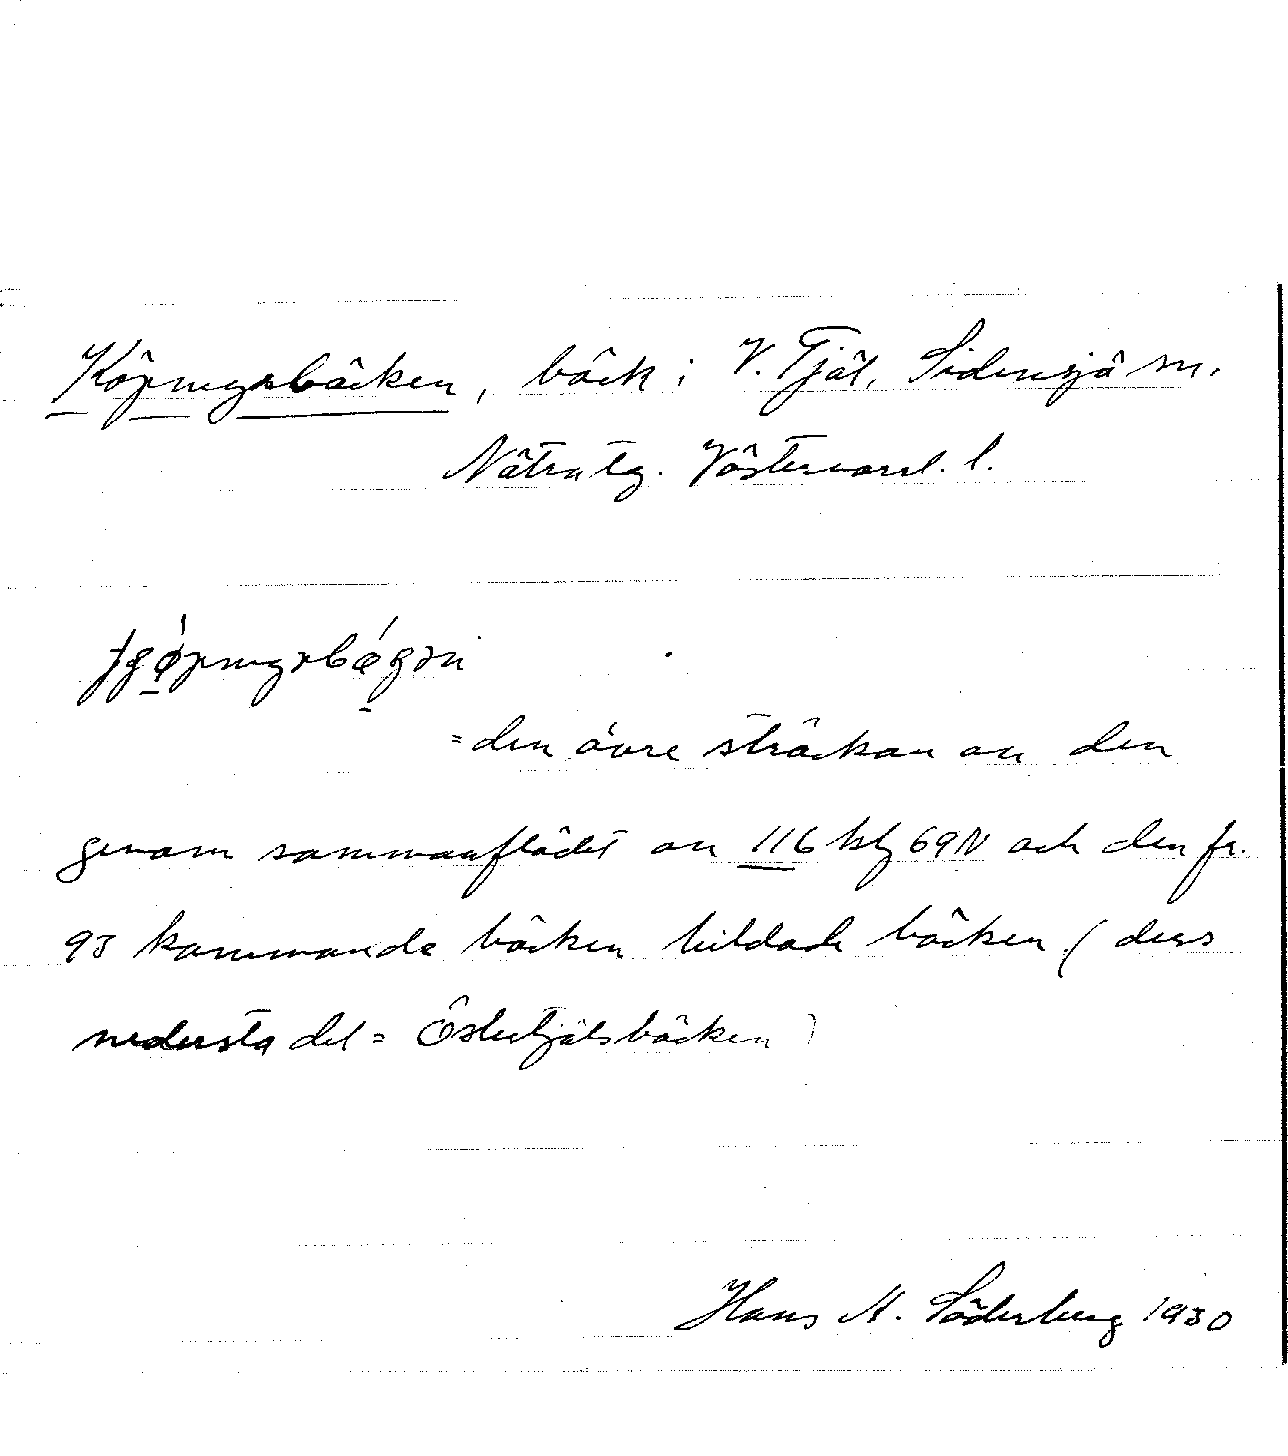 Köpingsbäcken, bäck i V. Tjäl, Sidensjö sn.
Nätra tg. Västernorrl. l.
= den övre sträckan av den
genom sammanflödet av 116 kbf 69N och den fr.
93 kommande bäcken bildade bäcken (dess
nedersta del = Östertjälsbäcken)
Hans A. Söderberg 1930